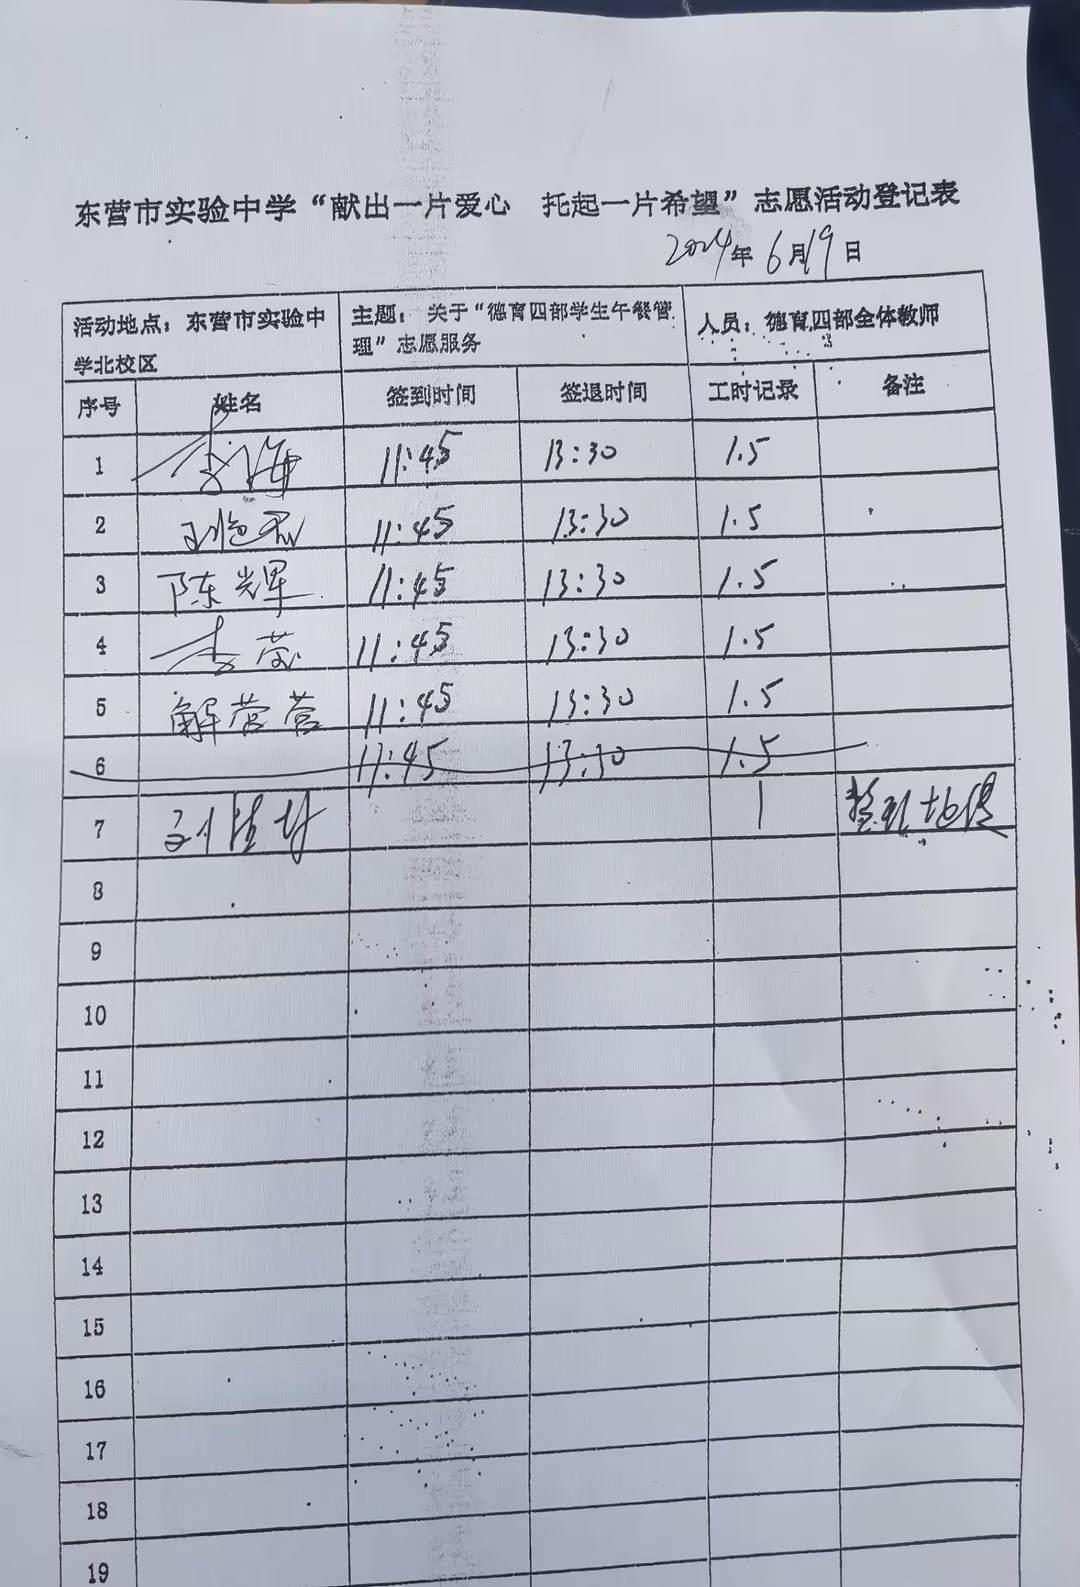 东营市实验中学“献出一片爱心 托起一片希望”志愿活动登记表
2024年6月19日
活动地点：东营市实验中学北校区 主题：关于“德育四部学生午餐管理”志愿服务 人员：德育四部全体教师
序号 姓名 签到时间 签退时间 工时记录 备注
1 李海 11:45 13:30 1.5
2 11:45 13:30 1.5
3 陈辉 11:45 13:30 1.5
4 李 11:45 13:30 1.5
5 解营营 11:45 13:30 1.5
6 11:45 13:30 1.5
7 刘 1 整理
8
9
10
11
12
13
14
15
16
17
18
19